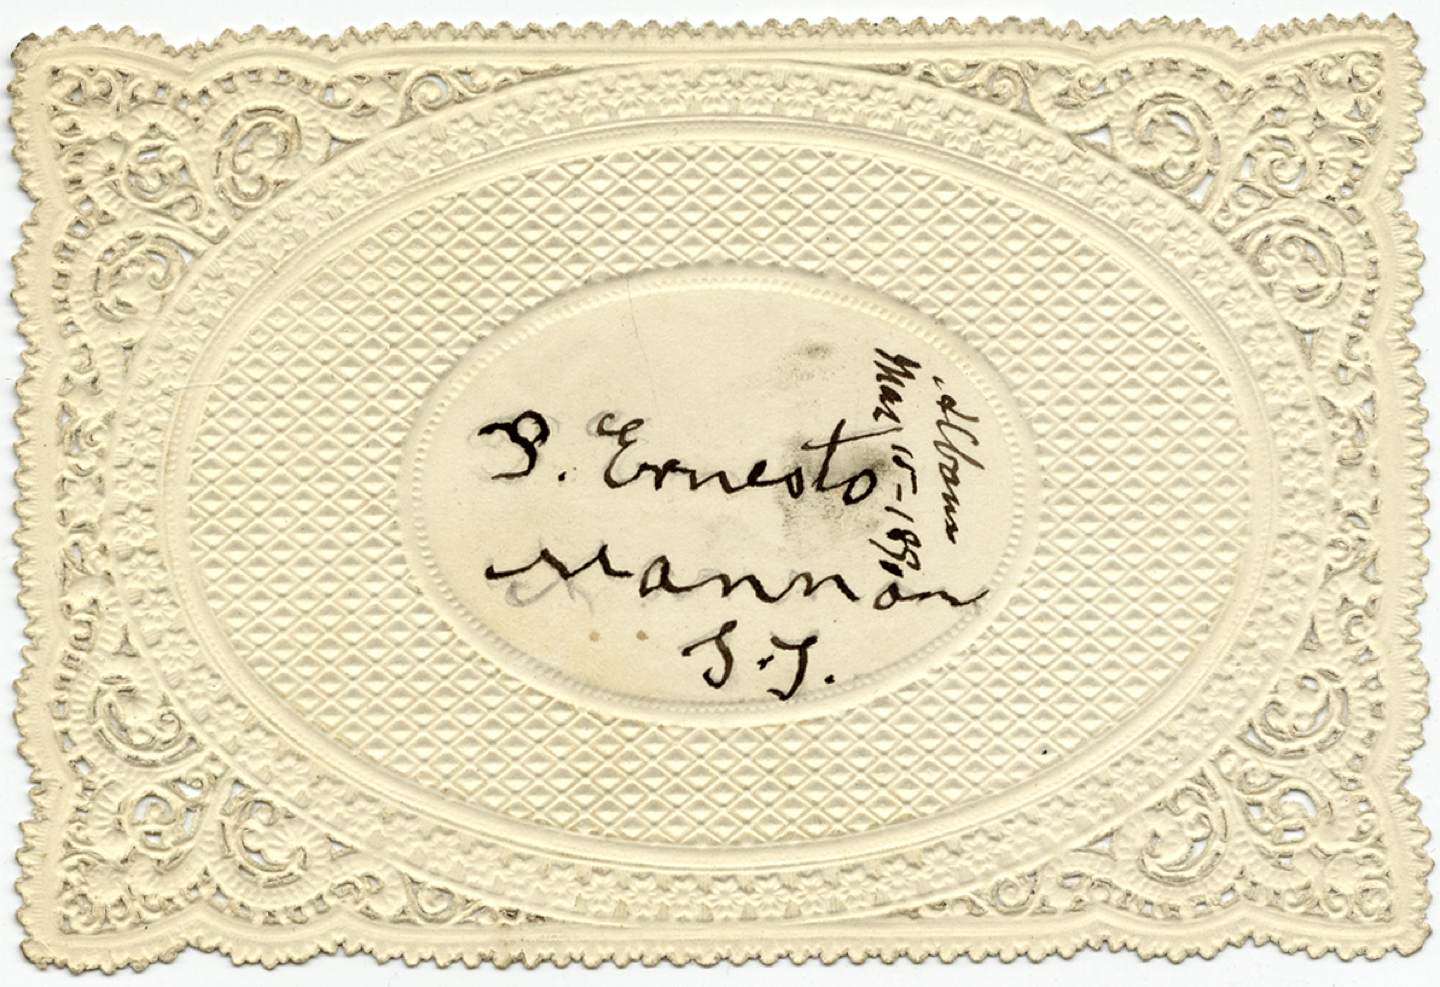 P. Ernesto
Mannon
S.J.
Albano
Mar 15-1890